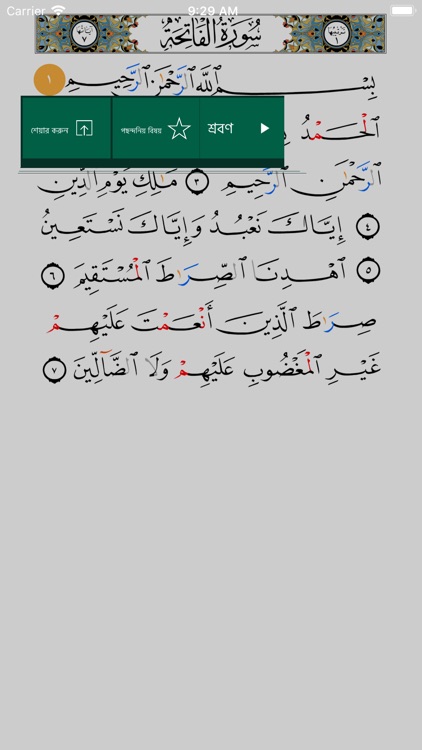 Carrier 9:29 AM
ترتيبها ١ سُورَةُ الْفَاتِحَةِ آياتها ٧
بِسْمِ ٱللَّهِ ٱلرَّحْمَٰنِ ٱلرَّحِيمِ ١
ٱلْحَمْدُ
শেয়ার করুন পছন্দনিয় বিষয় শ্রবণ
ٱلرَّحْمَٰنِ ٱلرَّحِيمِ ٣ مَٰلِكِ يَوْمِ ٱلدِّينِ
٤ إِيَّاكَ نَعْبُدُ وَإِيَّاكَ نَسْتَعِينُ
٥ ٱهْدِنَا ٱلصِّرَٰطَ ٱلْمُسْتَقِيمَ ٦
صِرَٰطَ ٱلَّذِينَ أَنْعَمْتَ عَلَيْهِمْ
غَيْرِ ٱلْمَغْضُوبِ عَلَيْهِمْ وَلَا ٱلضَّآلِّينَ ٧